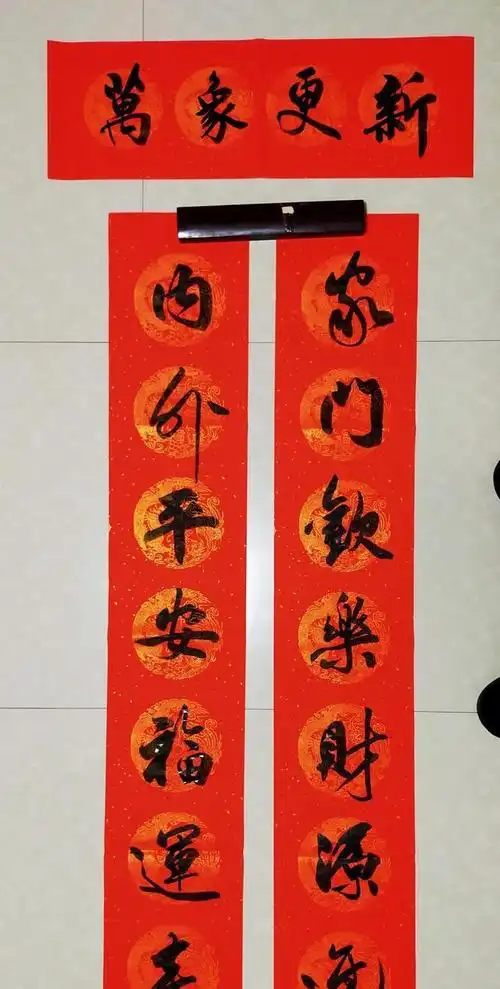 萬象更新
家門歡樂財源
内外平安福運